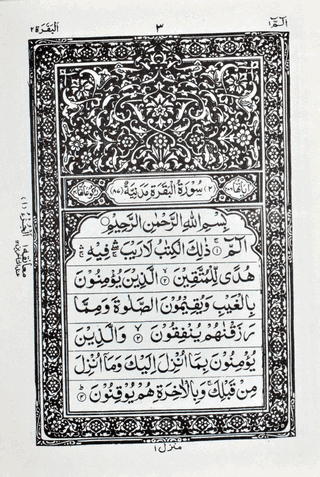 الٓمّٓ ١
٣
البقرة ٢
(٢) سُوْرَةُ الْبَقَرَةِ مَدَنِيَّةٌ (٨٧)
بِسْمِ اللّٰهِ الرَّحْمٰنِ الرَّحِيْمِ
الٓمّٓ ۚ ١ ذٰلِكَ الْكِتٰبُ لَا رَيْبَ ۛ فِيْهِ ۛ
هُدًى لِّلْمُتَّقِيْنَ ٢ الَّذِيْنَ يُؤْمِنُوْنَ
بِالْغَيْبِ وَيُقِيْمُوْنَ الصَّلٰوةَ وَمِمَّا
رَزَقْنٰهُمْ يُنْفِقُوْنَ ٣ وَالَّذِيْنَ
يُؤْمِنُوْنَ بِمَآ اُنْزِلَ اِلَيْكَ وَمَآ اُنْزِلَ
مِنْ قَبْلِكَ ۚ وَبِالْاٰخِرَةِ هُمْ يُوْقِنُوْنَ ٤
منزل ١